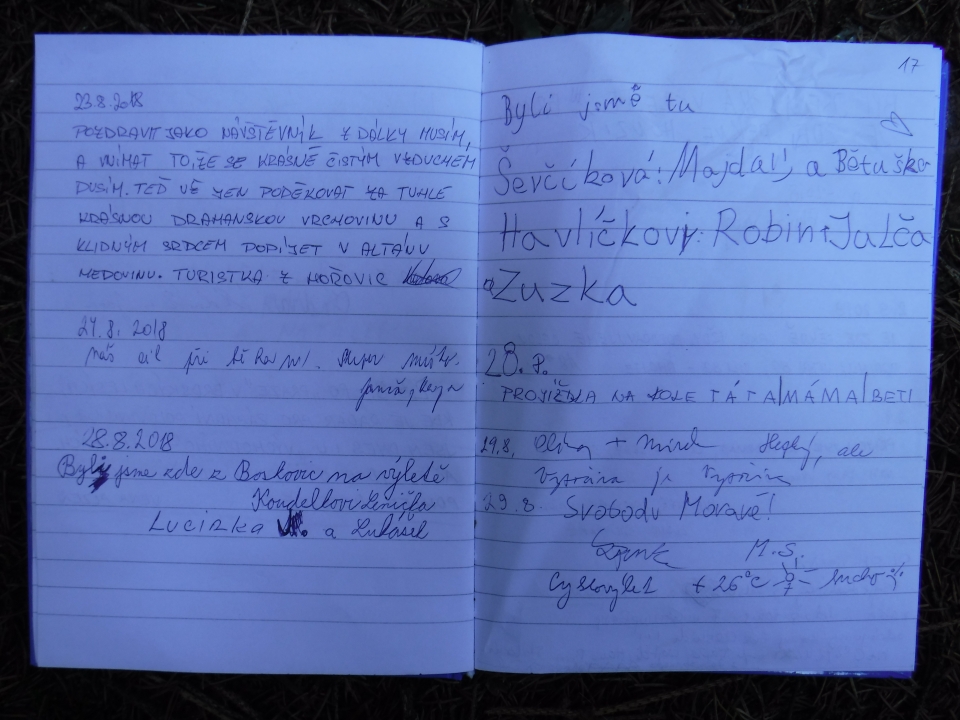 23.8.2018
POZDRAVIT JAKO NÁVŠTĚVNÍK Z DÁLKY MUSÍM,
A VNÍMAT TO, ŽE SE KRÁSNĚ ČISTÝM VZDUCHEM
DUSÍM. TEĎ UŽ JEN PODĚKOVAT ZA TUHLE
KRÁSNOU DRAHANSKOU VRCHOVINU A S
KLIDNÝM SRDCEM POPÍJET V ALTÁNU
MEDOVINU. TURISTKA Z HOŘOVIC
27.8.2018
náš cíl při
28.8.2018
Byli jsme zde z Boskovic na výletě
Koudelkovi Lenička
Lucinka a Lukášek
17
Byli jsmě tu
Ševčíková: Majda, a Bětuška
Havlíčkovi: Robin + Julča
Zuzka
28. 8.
PROJÍŽĎKA NA KOLE TÁTA/MÁMA/BETI
29.8. + Mirek ale
29.8. Svobodu Moravě!
M.S.
Cyklovýlet +26°C sucho